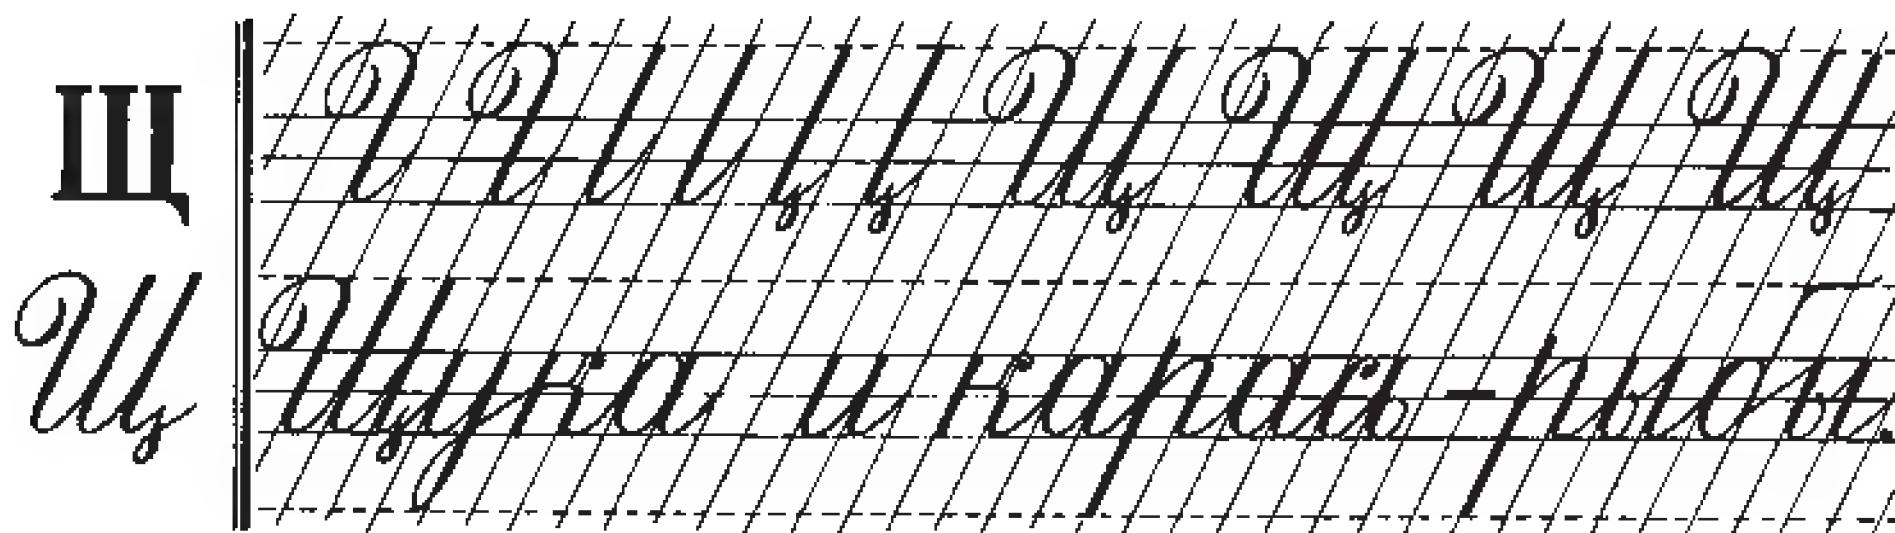 Щ Щ Щ Щ Щ
Щ Щука и карась – рыбы.